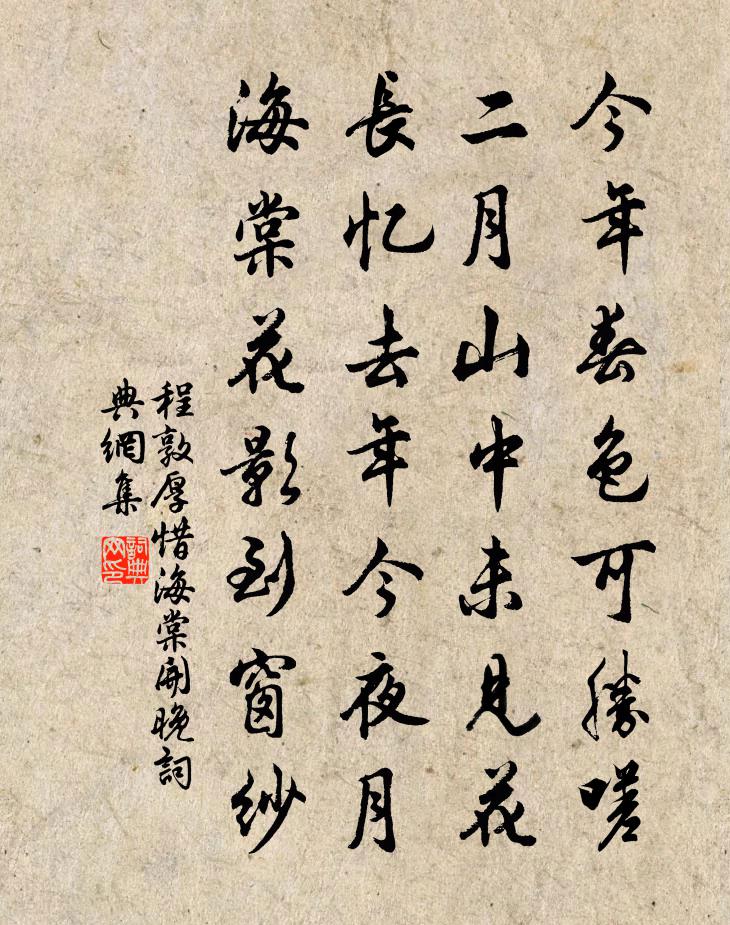 今年春色可勝嗟
二月山中未見花
長忆去年今夜月
海棠花影到窗紗
程敦厚惜海棠開晚詞
典網集
詞典
网印